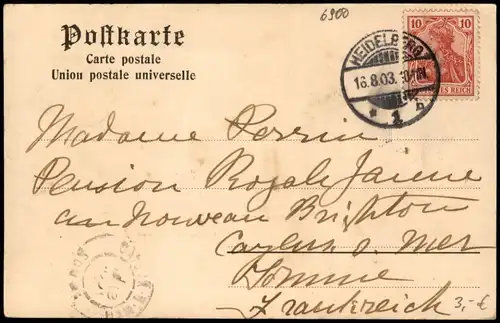 6900
Postkarte
Carte postale
Union postale universelle
10 10
HEIDELBERG
16.8.03. 10-11N
* 1 n
REICH
Madame Perrin
Pension Royale Jeanne
au nouveau Brighton
Cayeux s. Mer
Somme
Frankreich
3,- €